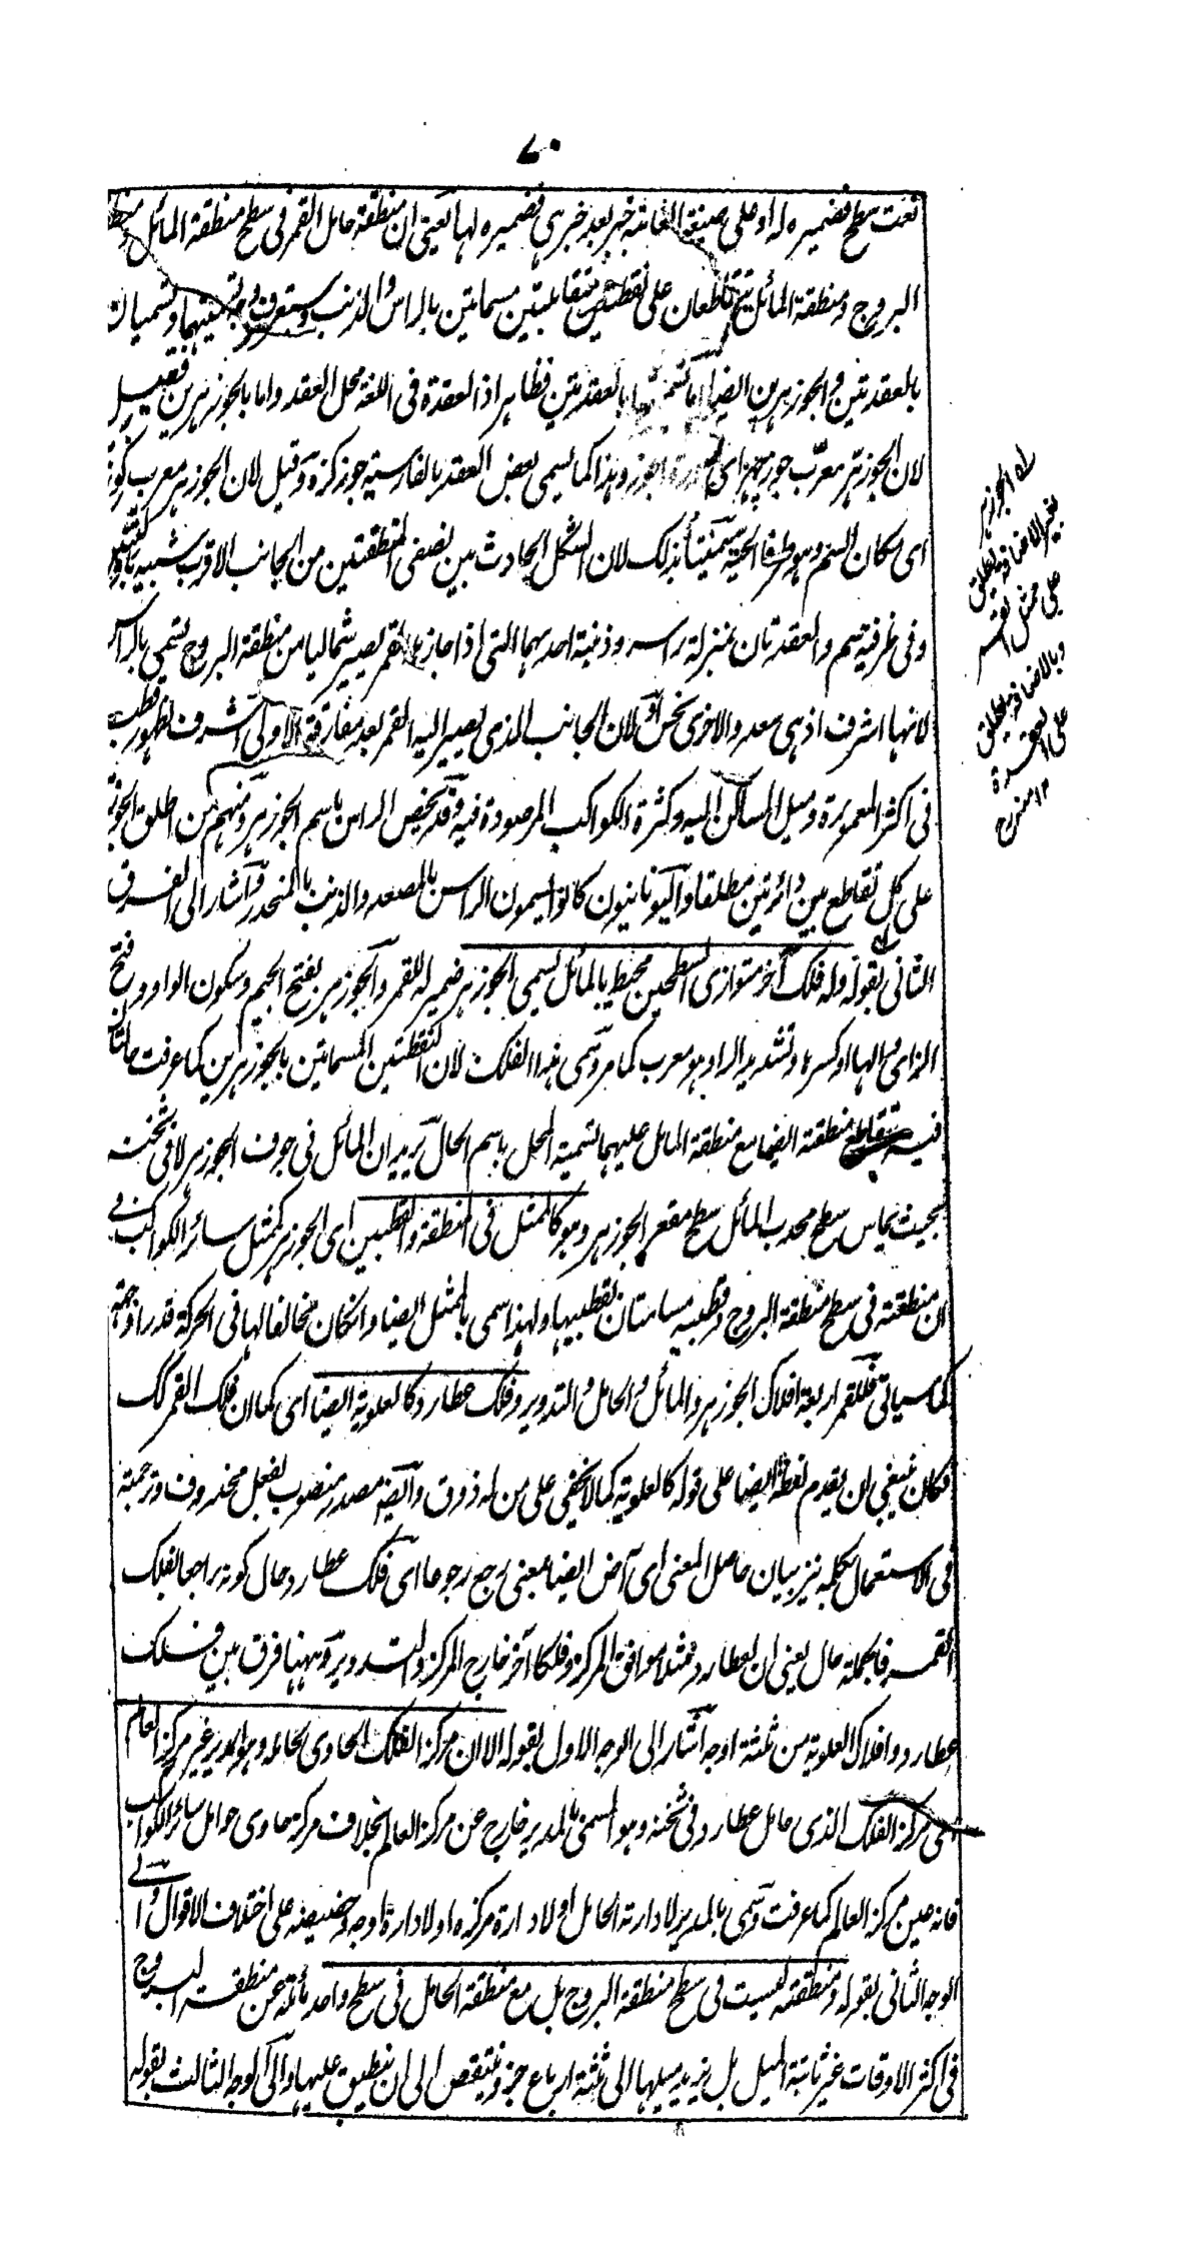 ٧٠
نعت سطح فضميره له او على صيغة الغائبة خبر بعد خبر هي فضميره لها يعني ان منطقة حامل القمر في سطح منطقة المائل
البروج ومنطقة المائل تتقاطعان على نقطتين متقابلتين مسماتين بالراس والذنب وستعرف وجه تسميتهما وتسميان
بالعقدتين والجوزهرين ايضا اما تسميتها بالعقدتين فظاهر اذ العقدة في اللغة محل العقد واما بالجوزهرين فقيل
لان الجوزهر معرب جوزچهر اى صورة الجوز وهذا كما يسمى بعض العقد بالفارسية جوز كره وقيل لان الجوزهر معرب
اى مكان السم وهو طرفا الحية سميتا بذلك لان الشكل الحادث بين نصفى المنطقتين من الجانب الاقرب شبيه
وفى طرفيه سم والعقدتان بمنزلة راسه وذنبه احدهما التى اذا جاز القمر يصير شماليا من منطقة البروج تسمى بالراس
لانها اشرف اذ هى سعد والاخرى نحس او لان الجانب الذى يصير اليه القمر بعد مفارقة الاولى اشرف لظهور قطب
فى اكثر المعمورة وميل المساكن اليه وكثرة الكواكب المرصودة فيه وقد يخص الراس باسم الجوزهر ومنهم من اطلق
على كل تقاطع بين دائرتين مطلقا واليونانيون كانوا يسمون الراس بالمصعد والذنب بالمنحدر واشار الى الفرق
الثانى بقوله وله فلك آخر متوازى السطحين محيط بالمائل يسمى الجوزهر ضمير له للقمر والجوزهر بفتح الجيم وسكون الواو وفتح
الزاى والها او كسرها وتشديد الرا وهو معرب كما مر وسمى هذا الفلك لان النقطتين المسماتين بالجوزهرين كما عرفت
فيه تتقاطع منطقة ايضا مع منطقة المائل عليهما تسمية المحل باسم الحال يريد ان المائل فى جوف الجوزهر لا فى ثخنه
بحيث يماس سطح محدب المائل سطح مقعر الجوزهر وهو كالممثل فى المنطقة والقطبين اى الجوزهر كممثل سائر الكواكب فى
ان منطقته فى سطح منطقة البروج وقطبيه مسامتان لقطبيها ولهذا سمى بالممثل ايضا وان كان مخالفا لها فى الحركة قدرا وجهة
كما سياتى فللقمر اربعة افلاك الجوزهر والمائل والحامل والتدوير وفلك عطارد كالعلوية ايضا اى كما ان فلك القمر كك
فكان ينبغى ان يقدم لفظة ايضا على قوله كالعلوية كما لا يخفى على من له ذوق وايضا مصدر منصوب بفعل محذوف وترجمته
فى الاستعمال بكلمة نيز بيان حاصل المعنى اى آض ايضا بمعنى رجع رجوعا اى فلك عطارد حال كونه راجعا لفلك
القمر فالجملة حال يعنى ان لعطارد ممثلا موافق المركز وفلكا آخر خارج المركز والتدوير وههنا فرق بين فلك
عطارد وافلاك العلوية من ثلثة اوجه اشار الى الوجه الاول بقوله الا ان مركز الفلك الحاوى لحامله وهو المدير غير مركز العالم
اى مركز الفلك الذى حامل عطارد فى ثخنه وهو المسمى بالمدير خارج عن مركز العالم بخلاف مركز حاوى حوامل سائر الكواكب
فانه عين مركز العالم كما عرفت وسمى بالمدير لادارته الحامل او لادارة مركزه او لادارة اوجه وحضيضه على اختلاف الاقوال والى
الوجه الثانى بقوله ومنطقته ليست فى سطح منطقة البروج بل مع منطقة الحامل فى سطح واحد مائلة عن منطقة البروج
فى اكثر الاوقات غير ثابتة الميل بل يزيد ميلها الى ثلثة ارباع جزء وينتقص الى ان ينطبق عليها والى الوجه الثالث بقوله
له الجوزهر
بغير الاضافة يطلق
على ممثل القمر
وبالاضافة يطلق
على العقدة
١٢ منه